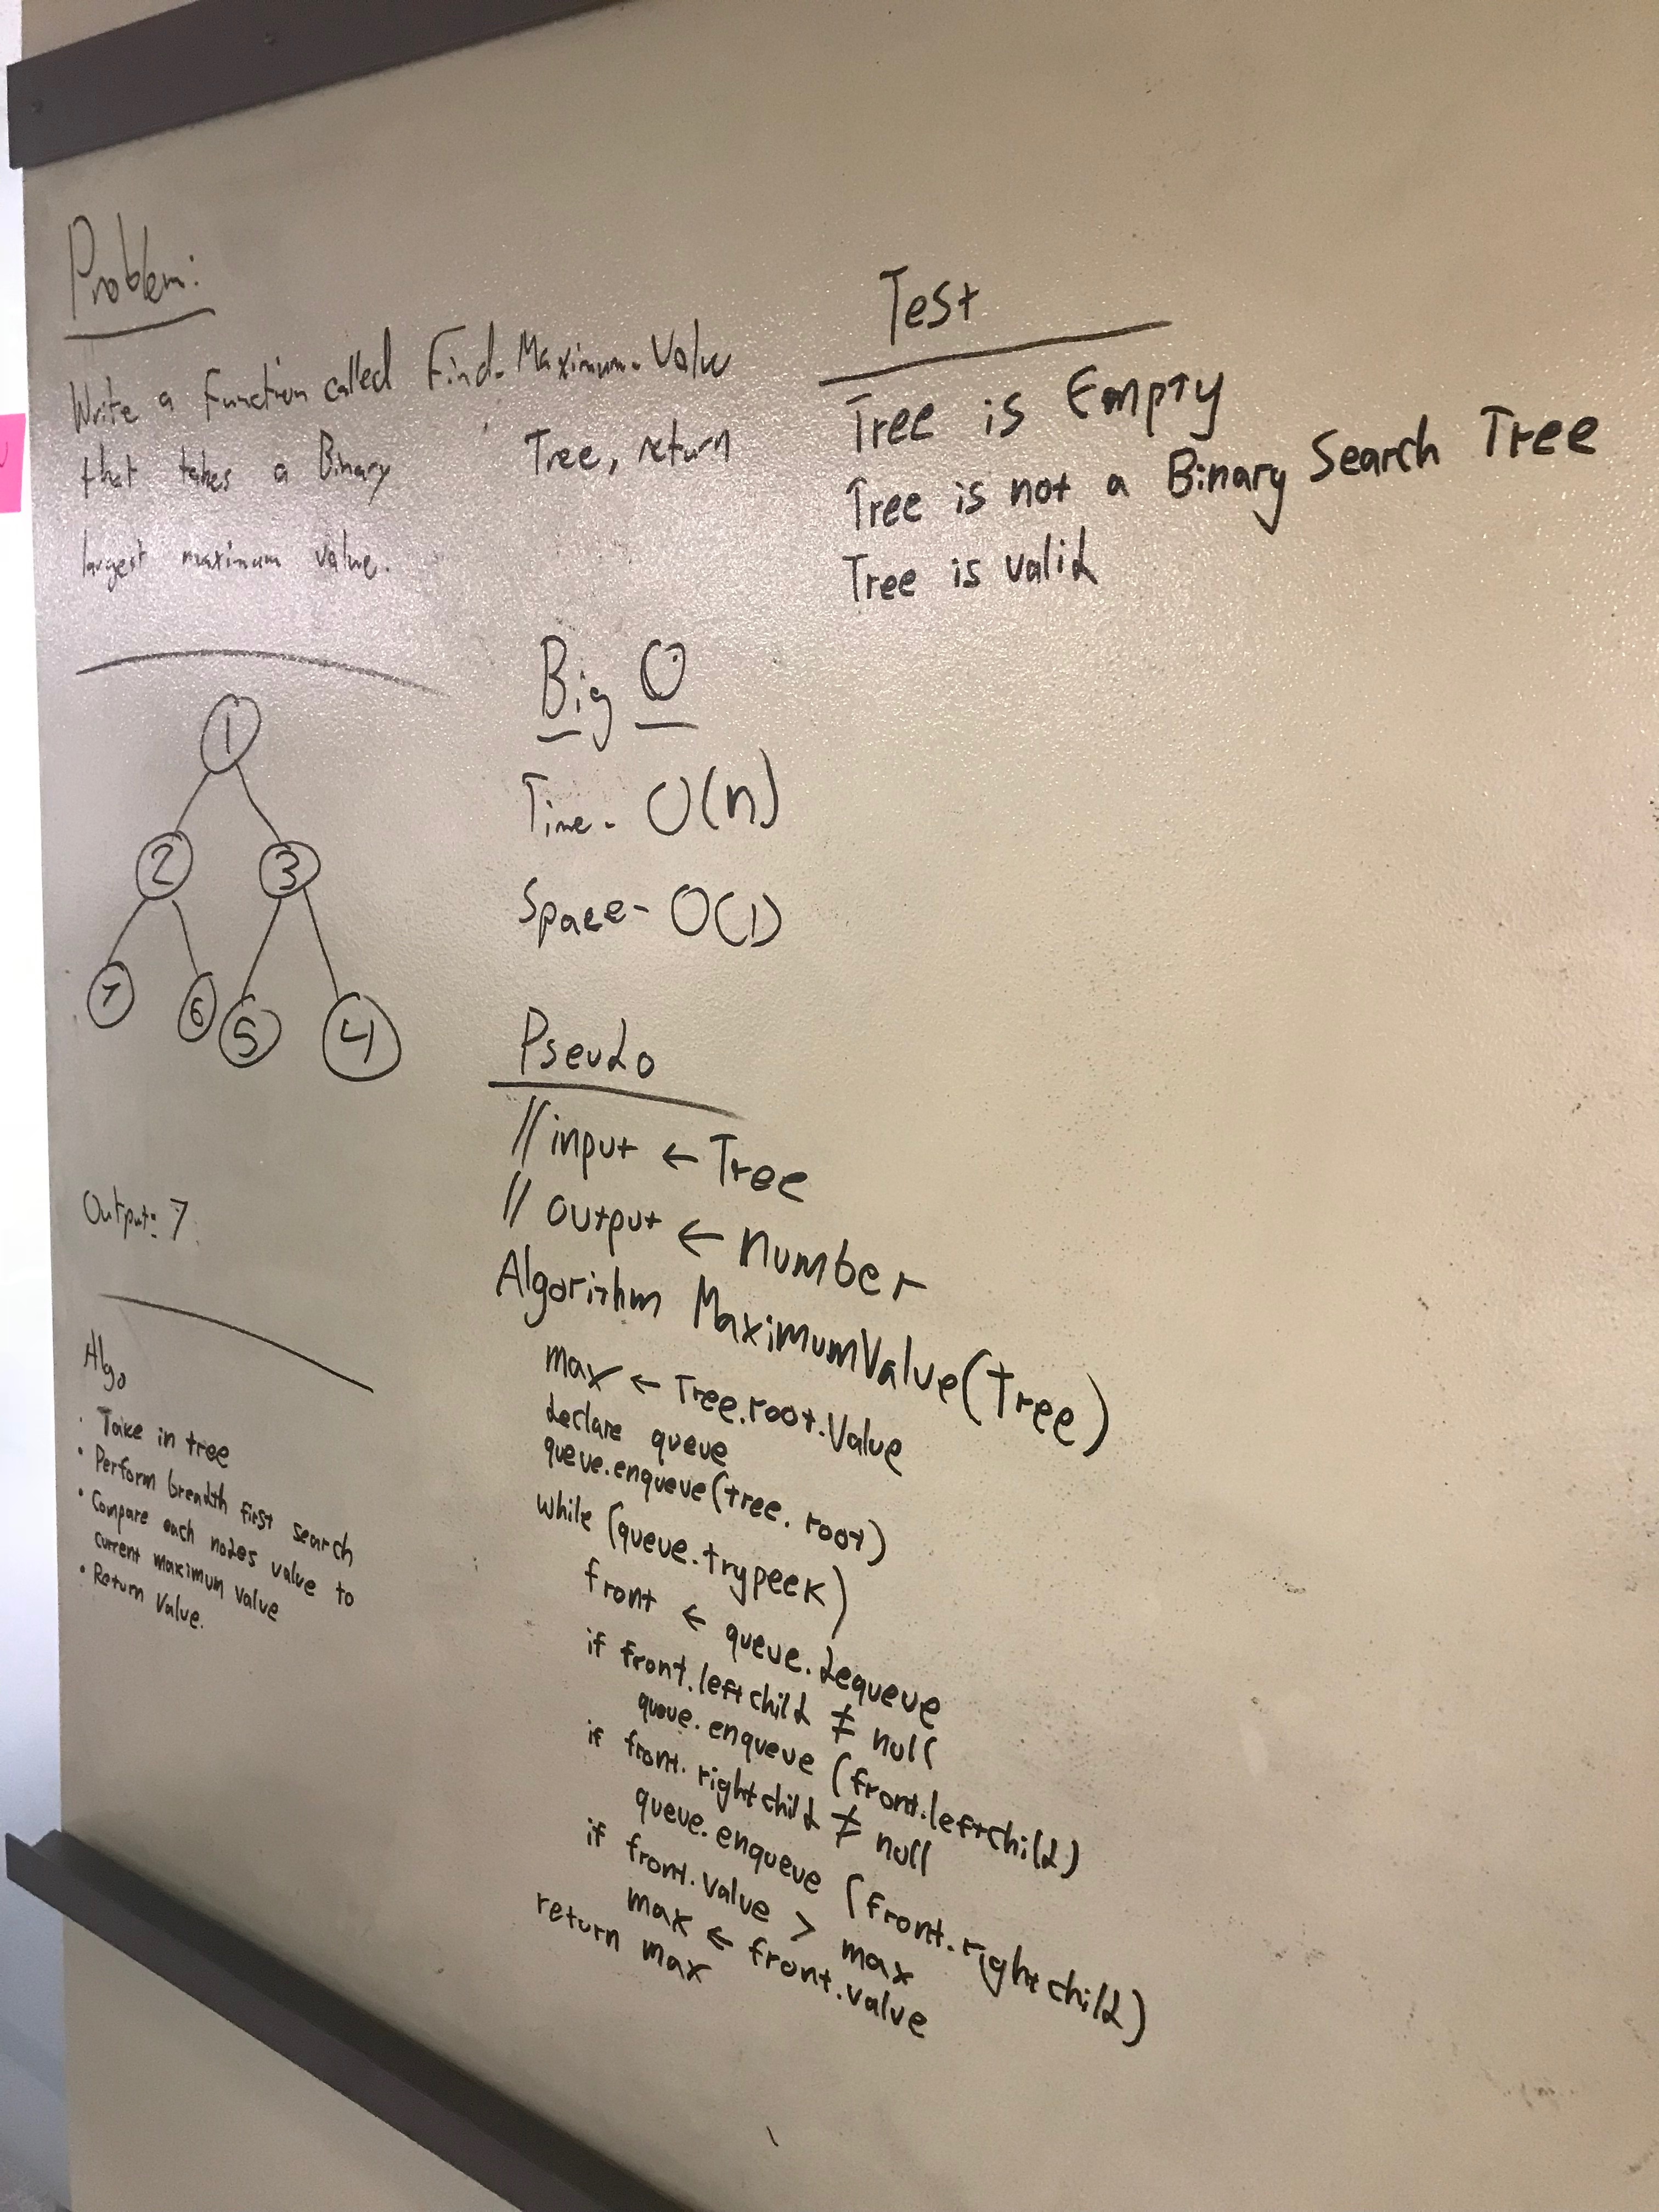 Problem:
Write a Function called Find-Maximum-Value
that takes a Binary Tree, return
largest maximum value.
1
2 3
7 6 5 4
Output: 7
Algo
· Take in tree
· Perform breadth first search
· Compare each nodes value to
current maximum value
· Return Value.
Test
Tree is Empty
Tree is not a Binary Search Tree
Tree is valid
Big O
Time - O(n)
Space - O(1)
Pseudo
// input ← Tree
// output ← number
Algorithm MaximumValue(Tree)
max ← Tree.root.Value
declare queue
queue.enqueue(tree.root)
while (queue.trypeek)
front ← queue.dequeue
if front.leftchild ≠ null
queue.enqueue (front.leftchild)
if front.rightchild ≠ null
queue.enqueue (front.rightchild)
if front.value > max
max ← front.value
return max